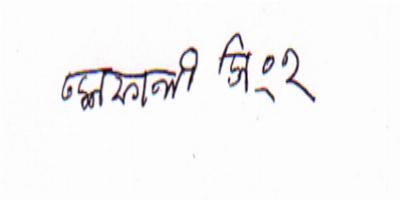 শেফালী সিংহ